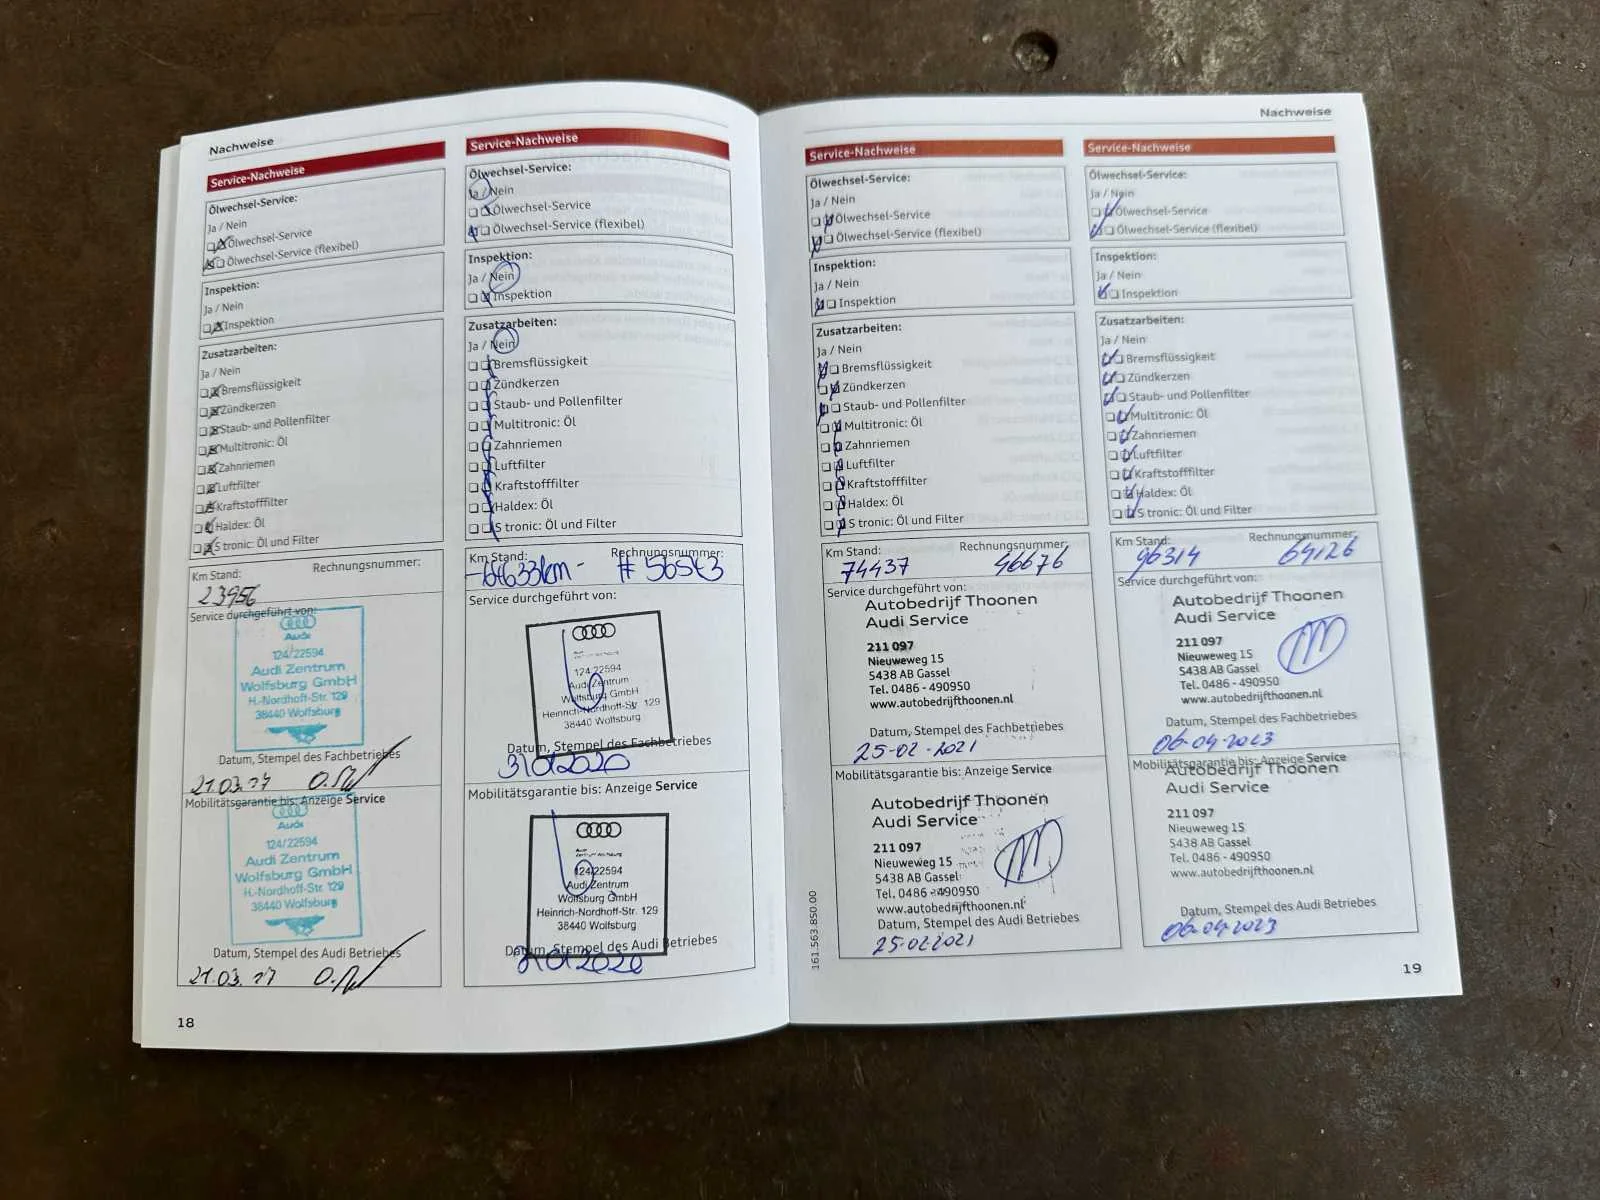 Nachweise
Service-Nachweise
Ölwechsel-Service:
Ja / Nein
Ölwechsel-Service
Ölwechsel-Service (flexibel)
Inspektion:
Ja / Nein
Inspektion
Zusatzarbeiten:
Ja / Nein
Bremsflüssigkeit
Zündkerzen
Staub- und Pollenfilter
Multitronic: Öl
Zahnriemen
Luftfilter
Kraftstofffilter
Haldex: Öl
S tronic: Öl und Filter
Km Stand: Rechnungsnummer:
23956
Service durchgeführt von:
Audi
124/22594
Audi Zentrum
Wolfsburg GmbH
H.-Nordhoff-Str. 129
38440 Wolfsburg
Datum, Stempel des Fachbetriebes
21.03.17
Mobilitätsgarantie bis: Anzeige Service
Audi
124/22594
Audi Zentrum
Wolfsburg GmbH
H.-Nordhoff-Str. 129
38440 Wolfsburg
Datum, Stempel des Audi Betriebes
21.03.17
18
Service-Nachweise
Ölwechsel-Service:
Ja / Nein
Ölwechsel-Service
Ölwechsel-Service (flexibel)
Inspektion:
Ja / Nein
Inspektion
Zusatzarbeiten:
Ja / Nein
Bremsflüssigkeit
Zündkerzen
Staub- und Pollenfilter
Multitronic: Öl
Zahnriemen
Luftfilter
Kraftstofffilter
Haldex: Öl
S tronic: Öl und Filter
Km Stand: Rechnungsnummer:
Service durchgeführt von:
124 22594
Audi Zentrum
Wolfsburg GmbH
Heinrich-Nordhoff-Str. 129
38440 Wolfsburg
Datum, Stempel des Fachbetriebes
31012020
Mobilitätsgarantie bis: Anzeige Service
124/22594
Audi Zentrum
Wolfsburg GmbH
Heinrich-Nordhoff-Str. 129
38440 Wolfsburg
Datum, Stempel des Audi Betriebes
Nachweise
Service-Nachweise
Ölwechsel-Service:
Ja / Nein
Ölwechsel-Service
Ölwechsel-Service (flexibel)
Inspektion:
Ja / Nein
Inspektion
Zusatzarbeiten:
Ja / Nein
Bremsflüssigkeit
Zündkerzen
Staub- und Pollenfilter
Multitronic: Öl
Zahnriemen
Luftfilter
Kraftstofffilter
Haldex: Öl
S tronic: Öl und Filter
Km Stand: Rechnungsnummer:
74437 46676
Service durchgeführt von:
Autobedrijf Thoonen
Audi Service
211 097
Nieuweweg 15
5438 AB Gassel
Tel. 0486 - 490950
www.autobedrijfthoonen.nl
Datum, Stempel des Fachbetriebes
25-02-2021
Mobilitätsgarantie bis: Anzeige Service
Autobedrijf Thoonen
Audi Service
211 097
Nieuweweg 15
5438 AB Gassel
Tel. 0486 - 490950
www.autobedrijfthoonen.nl
Datum, Stempel des Audi Betriebes
25-02 2021
161.563.850.00
Service-Nachweise
Ölwechsel-Service:
Ja / Nein
Ölwechsel-Service
Ölwechsel-Service (flexibel)
Inspektion:
Ja / Nein
Inspektion
Zusatzarbeiten:
Ja / Nein
Bremsflüssigkeit
Zündkerzen
Staub- und Pollenfilter
Multitronic: Öl
Zahnriemen
Luftfilter
Kraftstofffilter
Haldex: Öl
S tronic: Öl und Filter
Km Stand: Rechnungsnummer:
96314 64126
Service durchgeführt von:
Autobedrijf Thoonen
Audi Service
211 097
Nieuweweg 15
5438 AB Gassel
Tel. 0486 - 490950
www.autobedrijfthoonen.nl
Datum, Stempel des Fachbetriebes
06-04-2023
Mobilitätsgarantie bis: Anzeige Service
Autobedrijf Thoonen
Audi Service
211 097
Nieuweweg 15
5438 AB Gassel
Tel. 0486 - 490950
www.autobedrijfthoonen.nl
Datum, Stempel des Audi Betriebes
06-04-2023
19